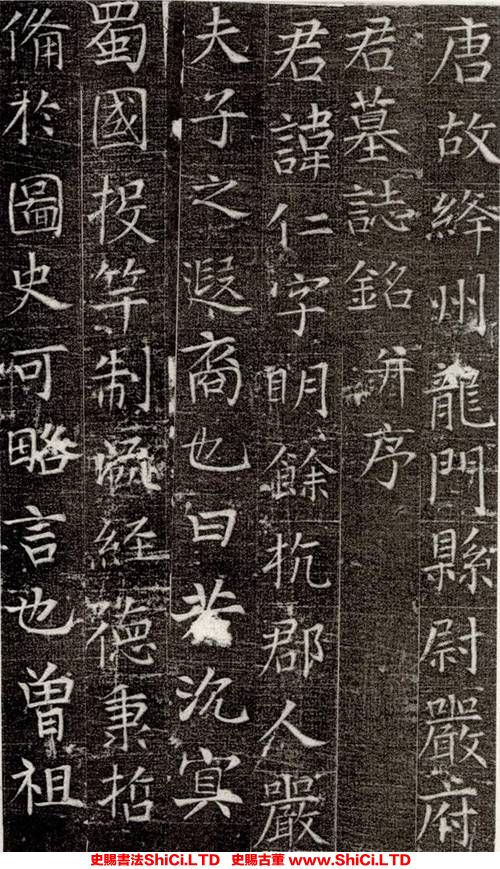 唐故絳州龍門縣尉嚴府
君墓誌銘并序
君諱仁字明餘杭郡人嚴
夫子之遐裔也曰若沉冥
蜀國投竿制㵎經德秉哲
備於圖史可略言也曾祖
史賜書法ShiCi.LTD 史賜古董 www.ShiCi.LTD